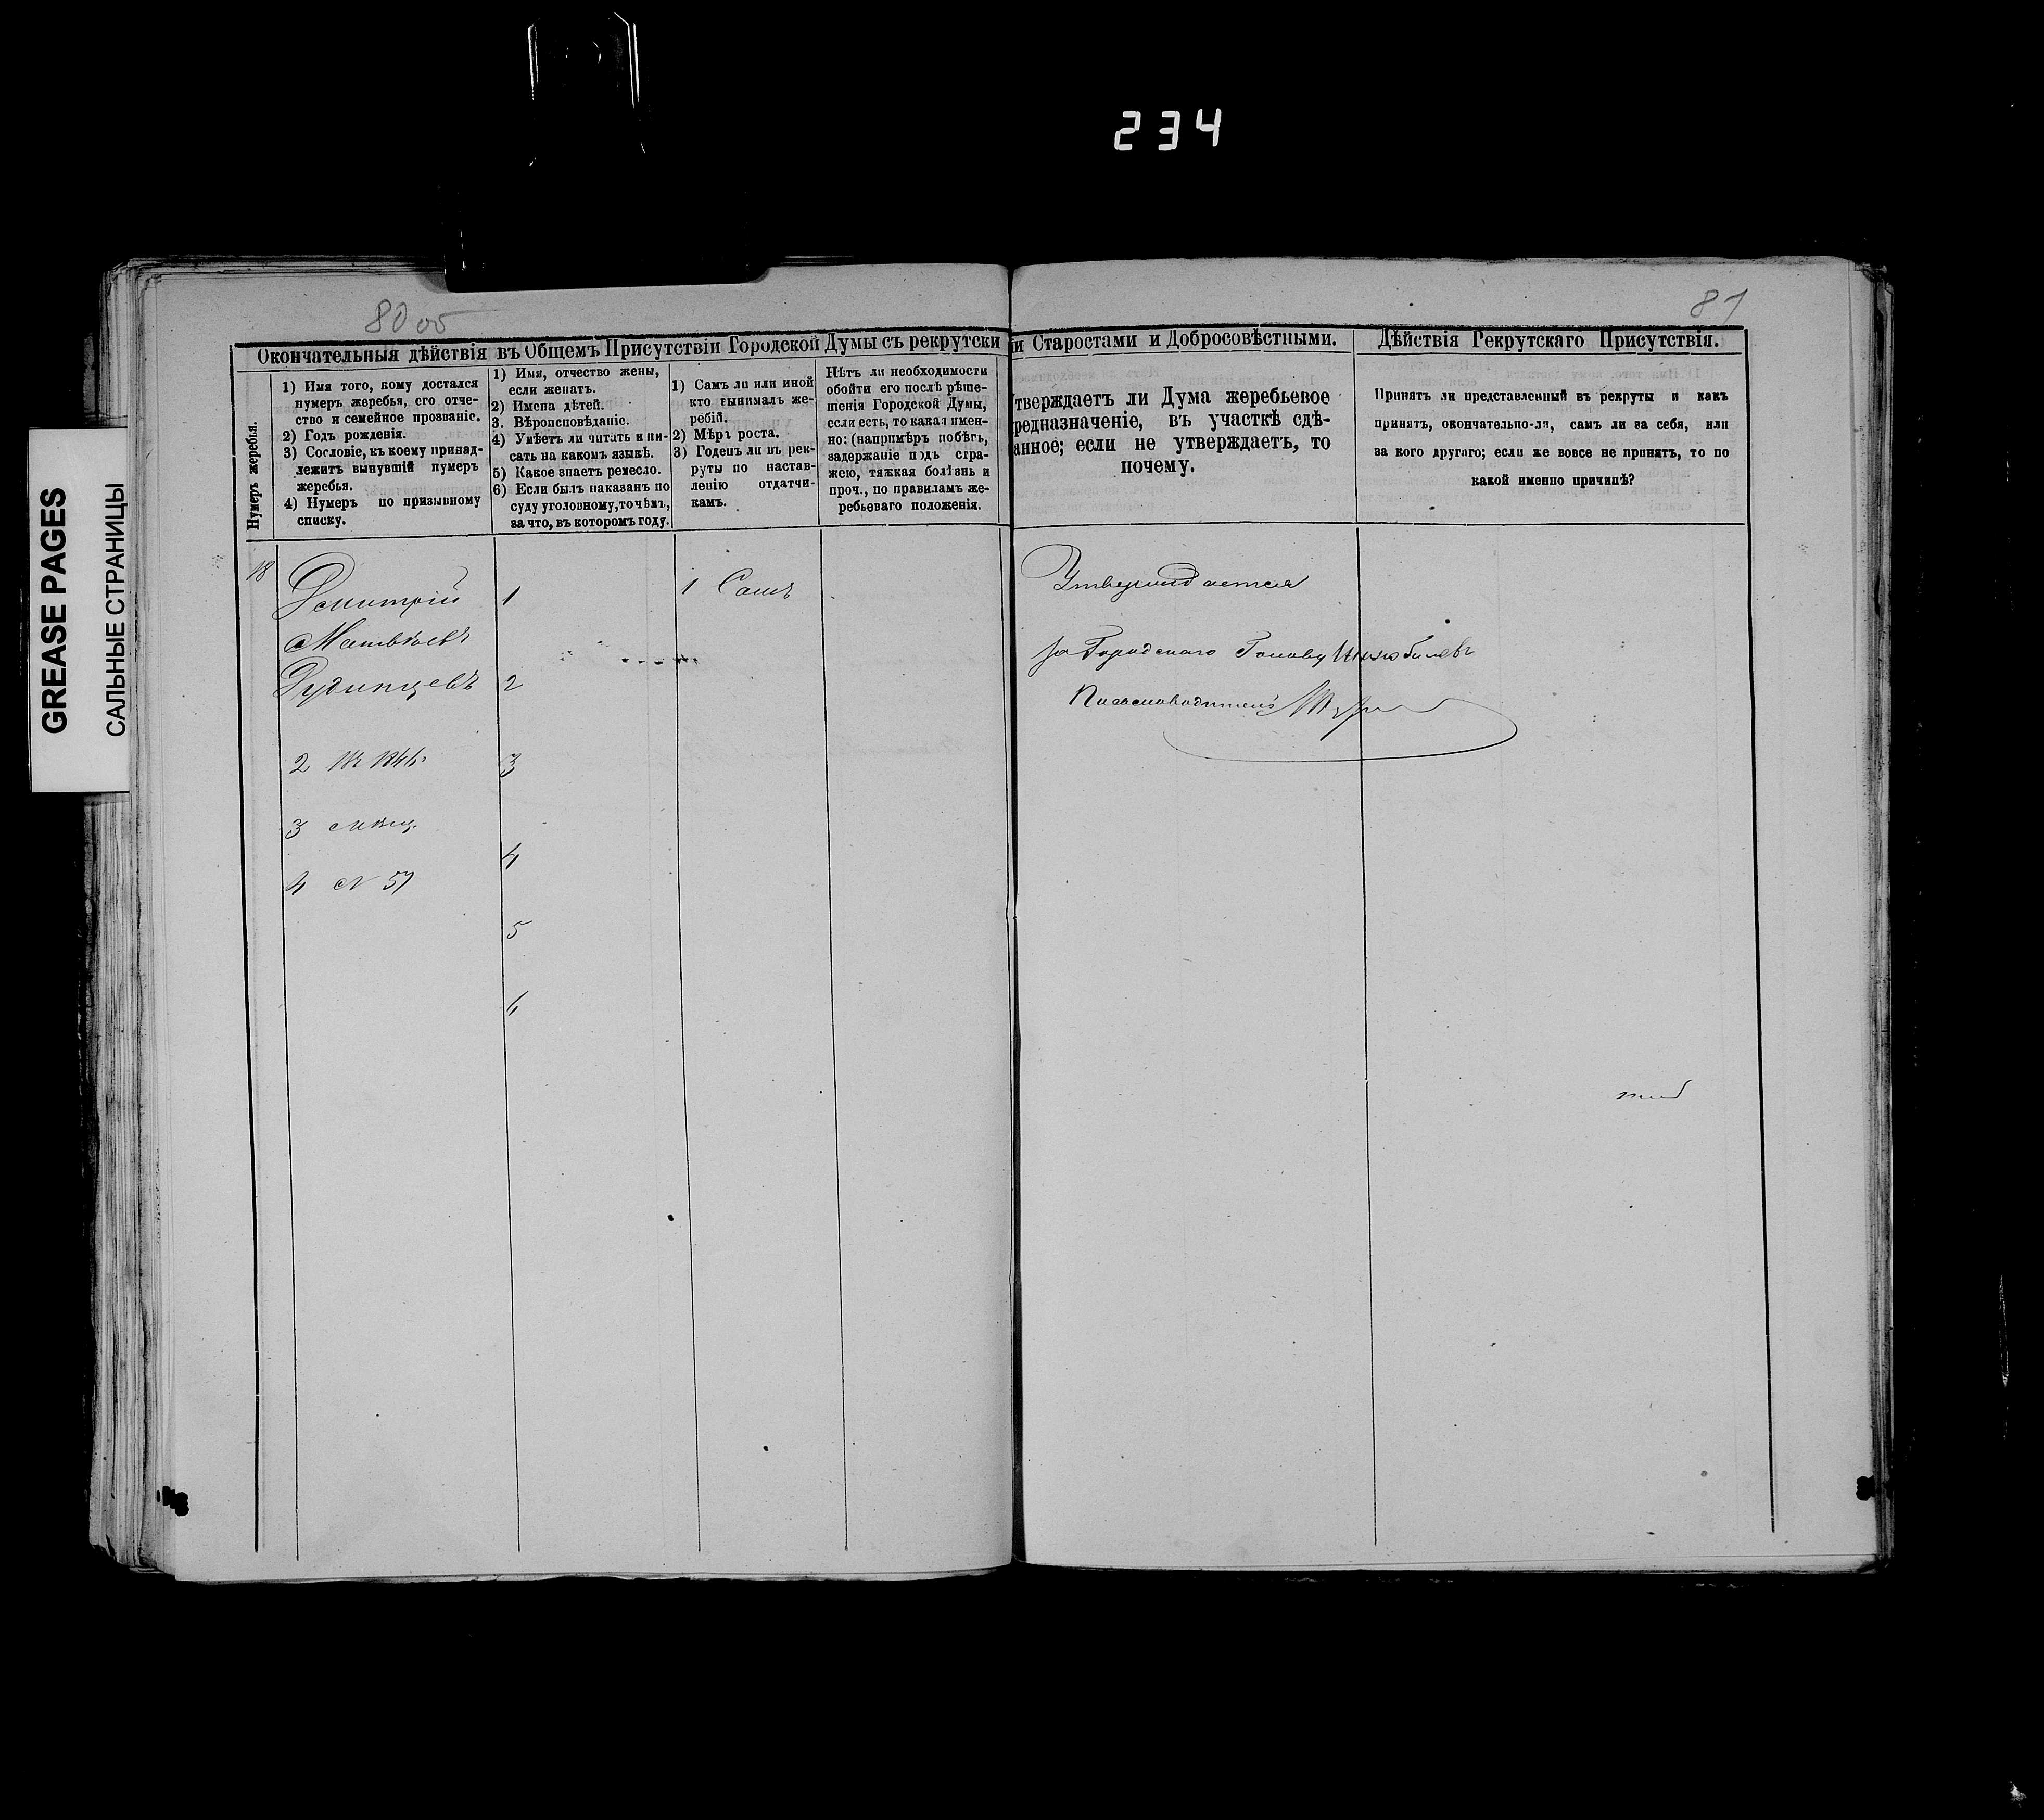 234
GREASE PAGES
САЛЬНЫЕ СТРАНИЦЫ
80 об
81
Окончательныя дѣйствія въ Общемъ Присутствіи Городской Думы съ рекрутски
ми Старостами и Добросовѣстными.
Дѣйствія Рекрутскаго Присутствія.
Нумеръ жеребья.
1) Имя того, кому достался
нумеръ жеребья, его отче-
ство и семейное прозваніе.
2) Годъ рожденія.
3) Сословіе, къ коему принад-
лежитъ вынувшій нумеръ
жеребья.
4) Нумеръ по призывному
списку.
1) Имя, отчество жены,
если женатъ.
2) Имена дѣтей.
3. Вѣроисповѣданіе.
4) Умѣетъ ли читать и пи-
сать на какомъ языкѣ.
5) Какое знаетъ ремесло.
6) Если былъ наказанъ по
суду уголовному, то чѣмъ,
за что, въ которомъ году.
1) Самъ ли или иной
кто вынималъ же-
ребій.
2) Мѣра роста.
3) Годенъ ли въ рек-
руты по настав-
ленію отдатчи-
камъ.
Нѣтъ ли необходимости
обойти его послѣ рѣше-
шенія Городской Думы,
если есть, то какая имен-
но: (напримѣръ побѣгъ,
задержаніе подъ стра-
жею, тяжкая болѣзнь и
проч., по правиламъ же-
ребьеваго положенія.
тверждаетъ ли Дума жеребьевое
редназначеніе, въ участкѣ сдѣ-
анное; если не утверждаетъ, то
почему.
Принятъ ли представленный въ рекруты и какъ
принятъ, окончательно-ли, самъ ли за себя, или
за кого другаго; если же вовсе не принятъ, то по
какой именно причинѣ?
18
Дмитрій
Матвѣевъ
Рудинцевъ
2 1844
3 мѣщ.
4 № 57
1
2
3
4
5
6
1 Самъ
Утверждается
за Городскаго Голову
Письмоводитель